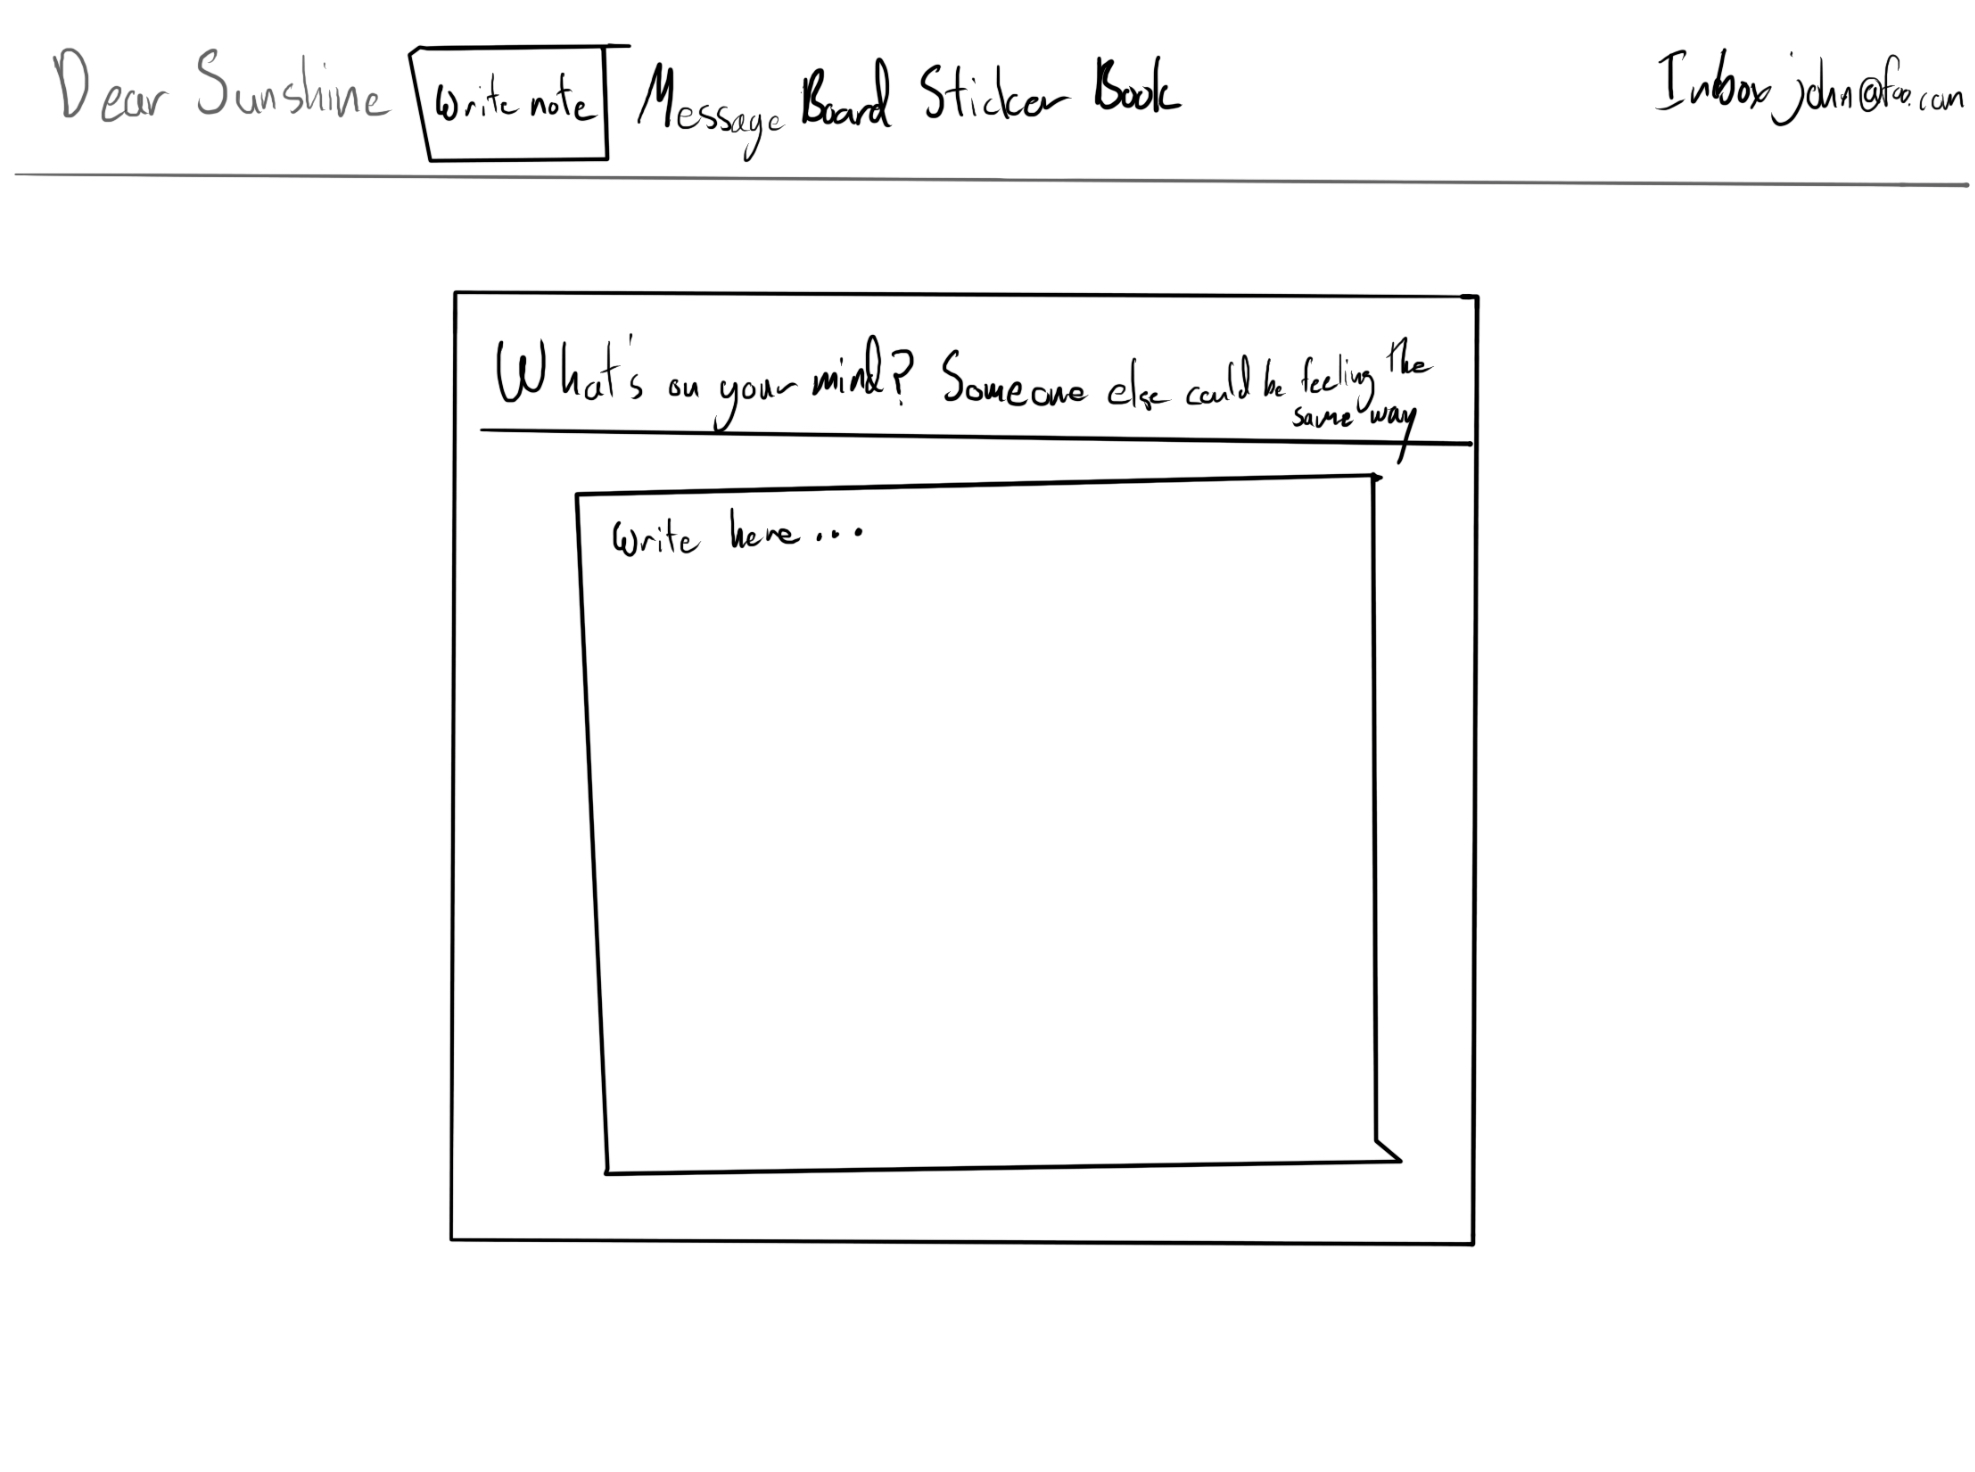 Dear Sunshine Write note Message Board Sticker Book Inbox john@foo.com
What's on your mind? Someone else could be feeling the
same way
Write here...